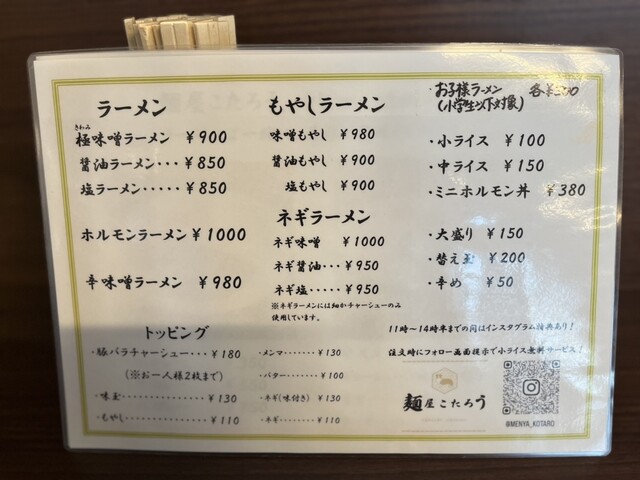 ラーメン
きわみ
極味噌ラーメン ￥900
醤油ラーメン・・・・ ￥850
塩ラーメン・・・・・ ￥850
ホルモンラーメン ￥1000
辛味噌ラーメン ￥980
もやしラーメン
味噌もやし ￥980
醤油もやし ￥900
塩もやし ￥900
ネギラーメン
ネギ味噌 ￥1000
ネギ醤油・・・ ￥950
ネギ塩・・・・・ ￥950
※ネギラーメンには細かチャーシューのみ
使用しています。
・お子様ラーメン 各￥500
(小学生以下対象)
・小ライス ￥100
・中ライス ￥150
・ミニホルモン丼 ￥380
・大盛り ￥150
・替え玉 ￥200
・辛め ￥50
トッピング
・豚バラチャーシュー・・・ ￥180
(※お一人様2枚まで)
・味玉・・・・・・・・・・・・ ￥130
・もやし・・・・・・・・・・・ ￥110
・メンマ・・・・・・ ￥130
・バター・・・・・・ ￥100
・ネギ(味付き) ￥130
・ネギ・・・・・・・ ￥110
11時～14時半までの間はインスタグラム特典あり!
注文時にフォロー画面提示で小ライス無料サービス!
麺屋こたろう
@MENYA_KOTARO